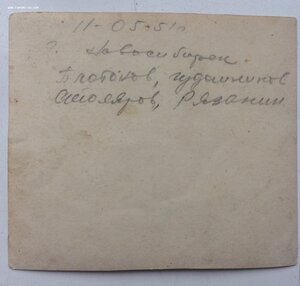 11-05-51г
г. Новосибирск.
Плотоков, Гудошников
Столяров, Рязанин